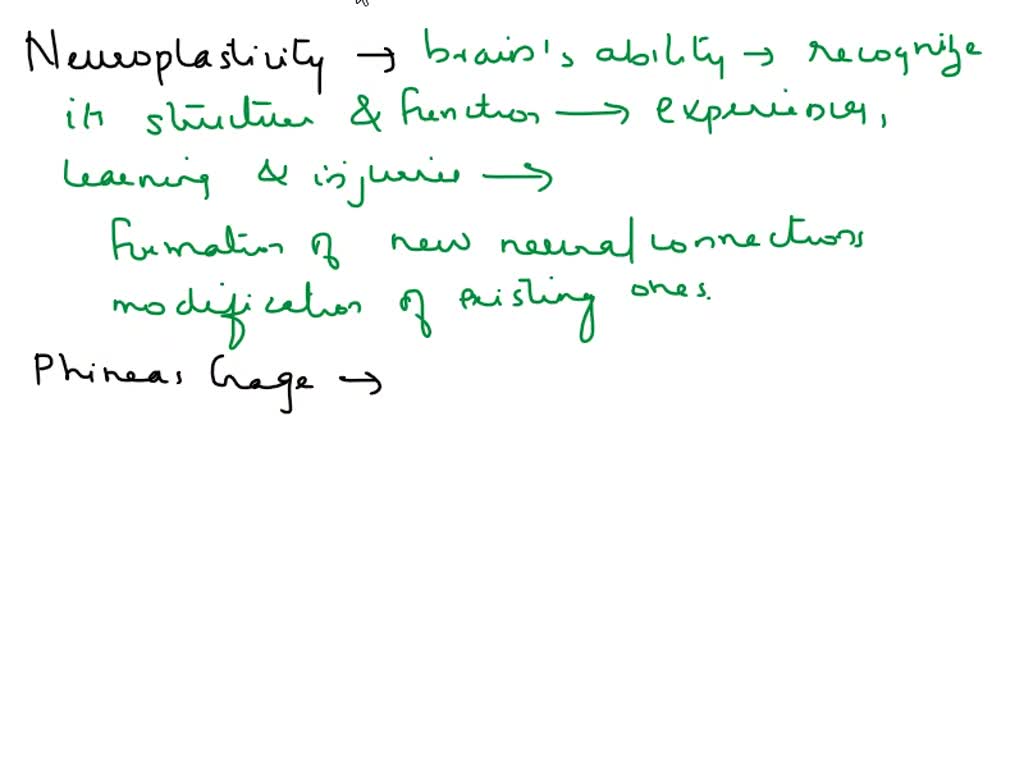 Neuroplasticity → brain's ability → recognize
its structure & function → experiences,
learning & injuries →
Formation of new neural connections
modification of existing ones.
Phineas Gage →